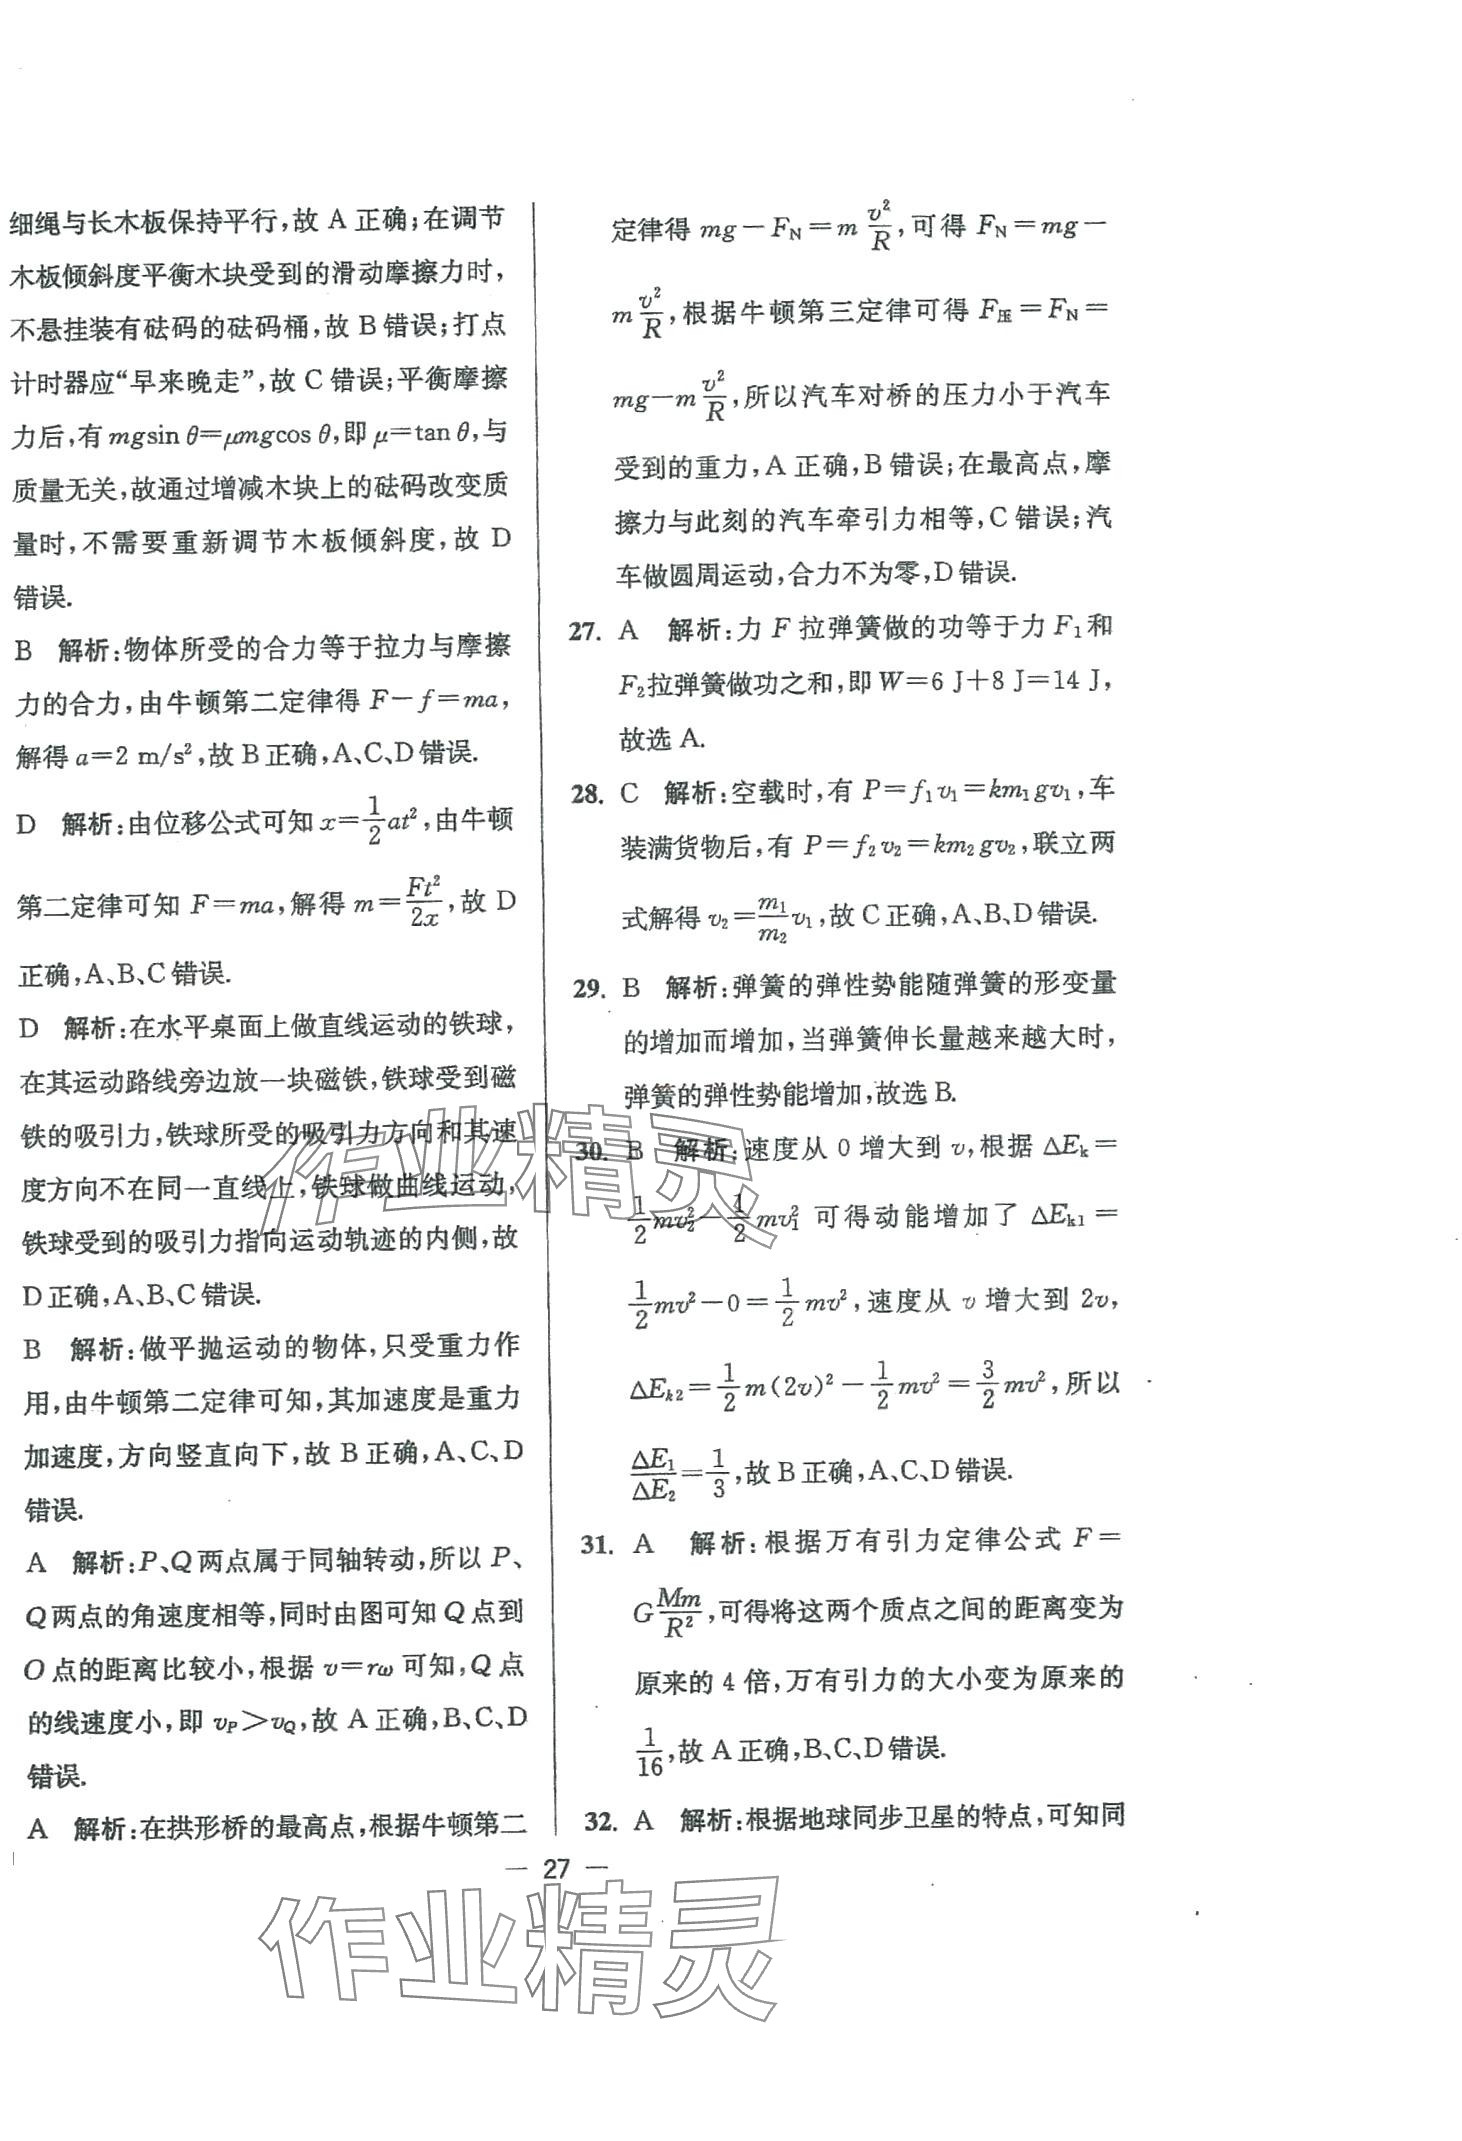 细绳与长木板保持平行,故 A 正确;在调节
木板倾斜度平衡木块受到的滑动摩擦力时,
不悬挂装有砝码的砝码桶,故 B 错误;打点
计时器应“早来晚走”,故 C 错误;平衡摩擦
力后,有 mgsin θ=μmgcos θ,即 μ=tan θ,与
质量无关,故通过增减木块上的砝码改变质
量时,不需要重新调节木板倾斜度,故 D
错误.
B 解析:物体所受的合力等于拉力与摩擦
力的合力,由牛顿第二定律得 F-f=ma,
解得 a=2 m/s²,故 B 正确,A、C、D 错误.
D 解析:由位移公式可知 x=1/2 at²,由牛顿
第二定律可知 F=ma,解得 m=Ft²/2x,故 D
正确,A、B、C 错误.
D 解析:在水平桌面上做直线运动的铁球,
在其运动路线旁边放一块磁铁,铁球受到磁
铁的吸引力,铁球所受的吸引力方向和其速
度方向不在同一直线上,铁球做曲线运动,
铁球受到的吸引力指向运动轨迹的内侧,故
D 正确,A、B、C 错误.
B 解析:做平抛运动的物体,只受重力作
用,由牛顿第二定律可知,其加速度是重力
加速度,方向竖直向下,故 B 正确,A、C、D
错误.
A 解析:P、Q 两点属于同轴转动,所以 P、
Q 两点的角速度相等,同时由图可知 Q 点到
O 点的距离比较小,根据 v=rω 可知,Q 点
的线速度小,即 v_P>v_Q,故 A 正确,B、C、D
错误.
A 解析:在拱形桥的最高点,根据牛顿第二
定律得 mg-F_N=m v²/R,可得 F_N=mg-
m v²/R,根据牛顿第三定律可得 F_压=F_N=
mg-m v²/R,所以汽车对桥的压力小于汽车
受到的重力,A 正确,B 错误;在最高点,摩
擦力与此刻的汽车牵引力相等,C 错误;汽
车做圆周运动,合力不为零,D 错误.
27. A 解析:力 F 拉弹簧做的功等于力 F₁ 和
F₂ 拉弹簧做功之和,即 W=6 J+8 J=14 J,
故选 A.
28. C 解析:空载时,有 P=f₁v₁=km₁gv₁,车
装满货物后,有 P=f₂v₂=km₂gv₂,联立两
式解得 v₂=m₁/m₂ v₁,故 C 正确,A、B、D 错误.
29. B 解析:弹簧的弹性势能随弹簧的形变量
的增加而增加,当弹簧伸长量越来越大时,
弹簧的弹性势能增加,故选 B.
30. B 解析:速度从 0 增大到 v,根据 ΔE_k=
1/2 mv₂²-1/2 mv₁² 可得动能增加了 ΔE_k1=
1/2 mv²-0=1/2 mv²,速度从 v 增大到 2v,
ΔE_k2=1/2 m(2v)²-1/2 mv²=3/2 mv²,所以
ΔE₁/ΔE₂=1/3,故 B 正确,A、C、D 错误.
31. A 解析:根据万有引力定律公式 F=
G Mm/R²,可得将这两个质点之间的距离变为
原来的 4 倍,万有引力的大小变为原来的
1/16,故 A 正确,B、C、D 错误.
32. A 解析:根据地球同步卫星的特点,可知同
— 27 —
作业精灵
作业精灵